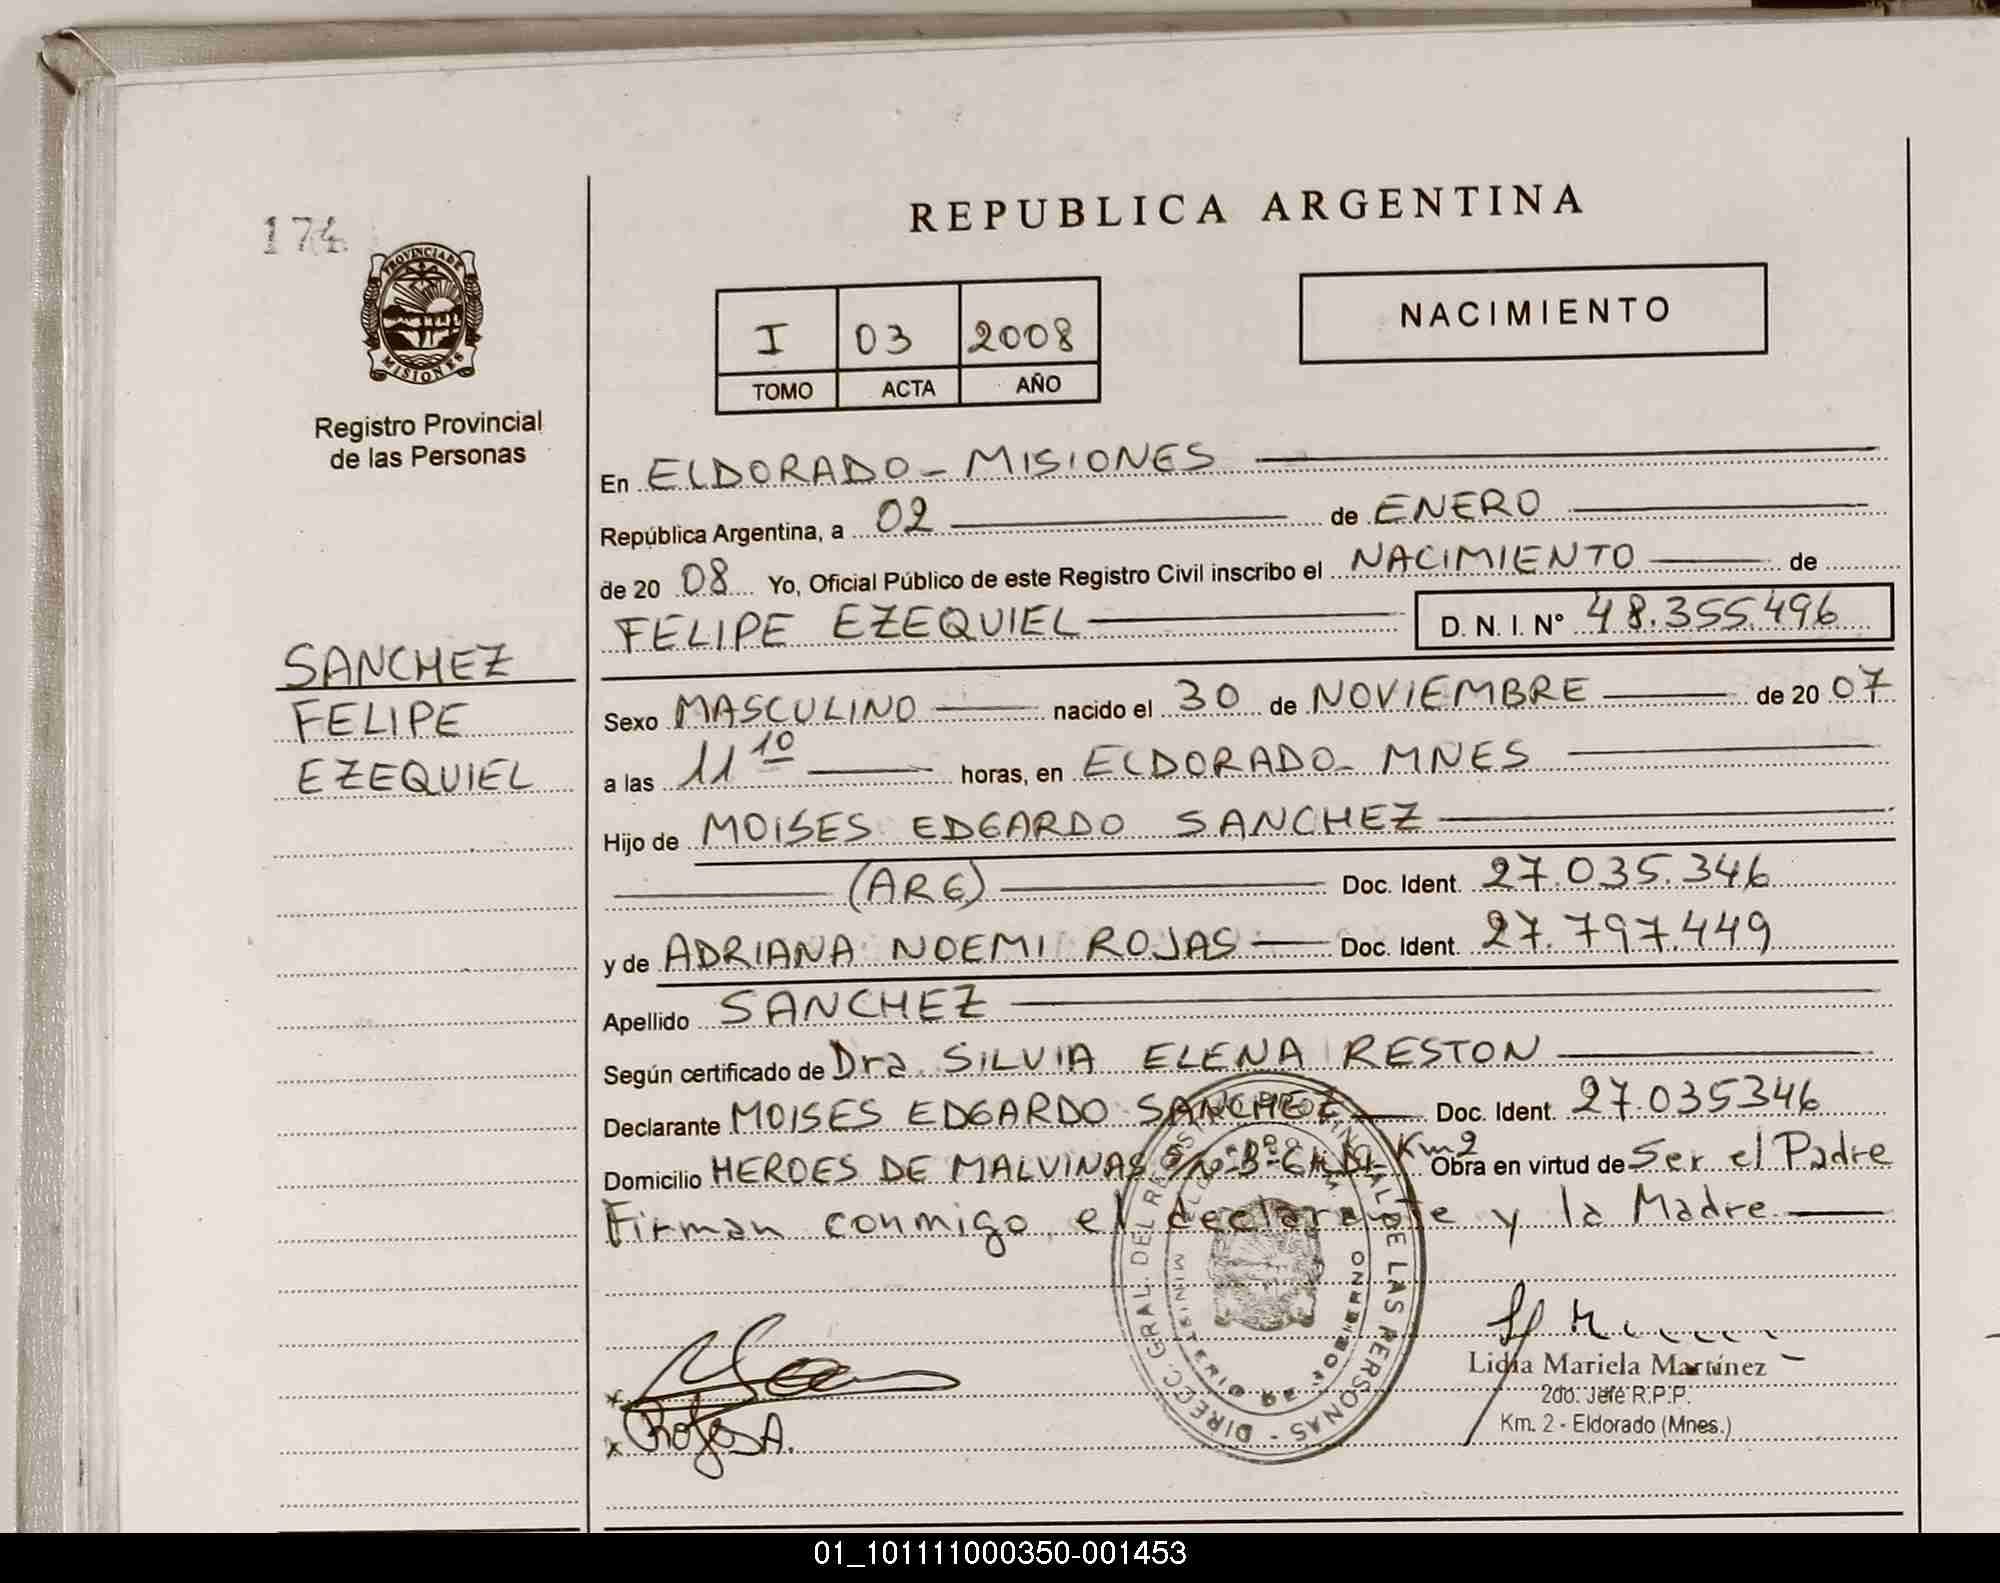 174
PROVINCIA DE
MISIONES
Registro Provincial
de las Personas
SANCHEZ
FELIPE
EZEQUIEL
REPUBLICA ARGENTINA
I 03 2008
TOMO ACTA AÑO
NACIMIENTO
En ELDORADO - MISIONES
República Argentina, a 02 de ENERO
de 20 08 Yo, Oficial Público de este Registro Civil inscribo el NACIMIENTO de
FELIPE EZEQUIEL D. N. I. Nº 48.355.496
Sexo MASCULINO nacido el 30 de NOVIEMBRE de 20 07
a las 11 10 horas, en ELDORADO - MNES
Hijo de MOISES EDGARDO SANCHEZ
(ARG) Doc. Ident. 27.035.346
y de ADRIANA NOEMI ROJAS Doc. Ident. 27.797.449
Apellido SANCHEZ
Según certificado de Dra. SILVIA ELENA RESTON
Declarante MOISES EDGARDO SANCHEZ Doc. Ident. 27.035346
Domicilio HEROES DE MALVINAS S/Nº Km2 Obra en virtud de Ser el Padre
Firman conmigo el declarante y la Madre
DIRECC. GRAL. DEL PROVINCIAL DE LAS PERSONAS
MINISTERIO DE GOBIERNO
Rojas A.
Lidia Mariela Martínez
2do. Jefe R.P.P.
Km. 2 - Eldorado (Mnes.)
01_101111000350-001453